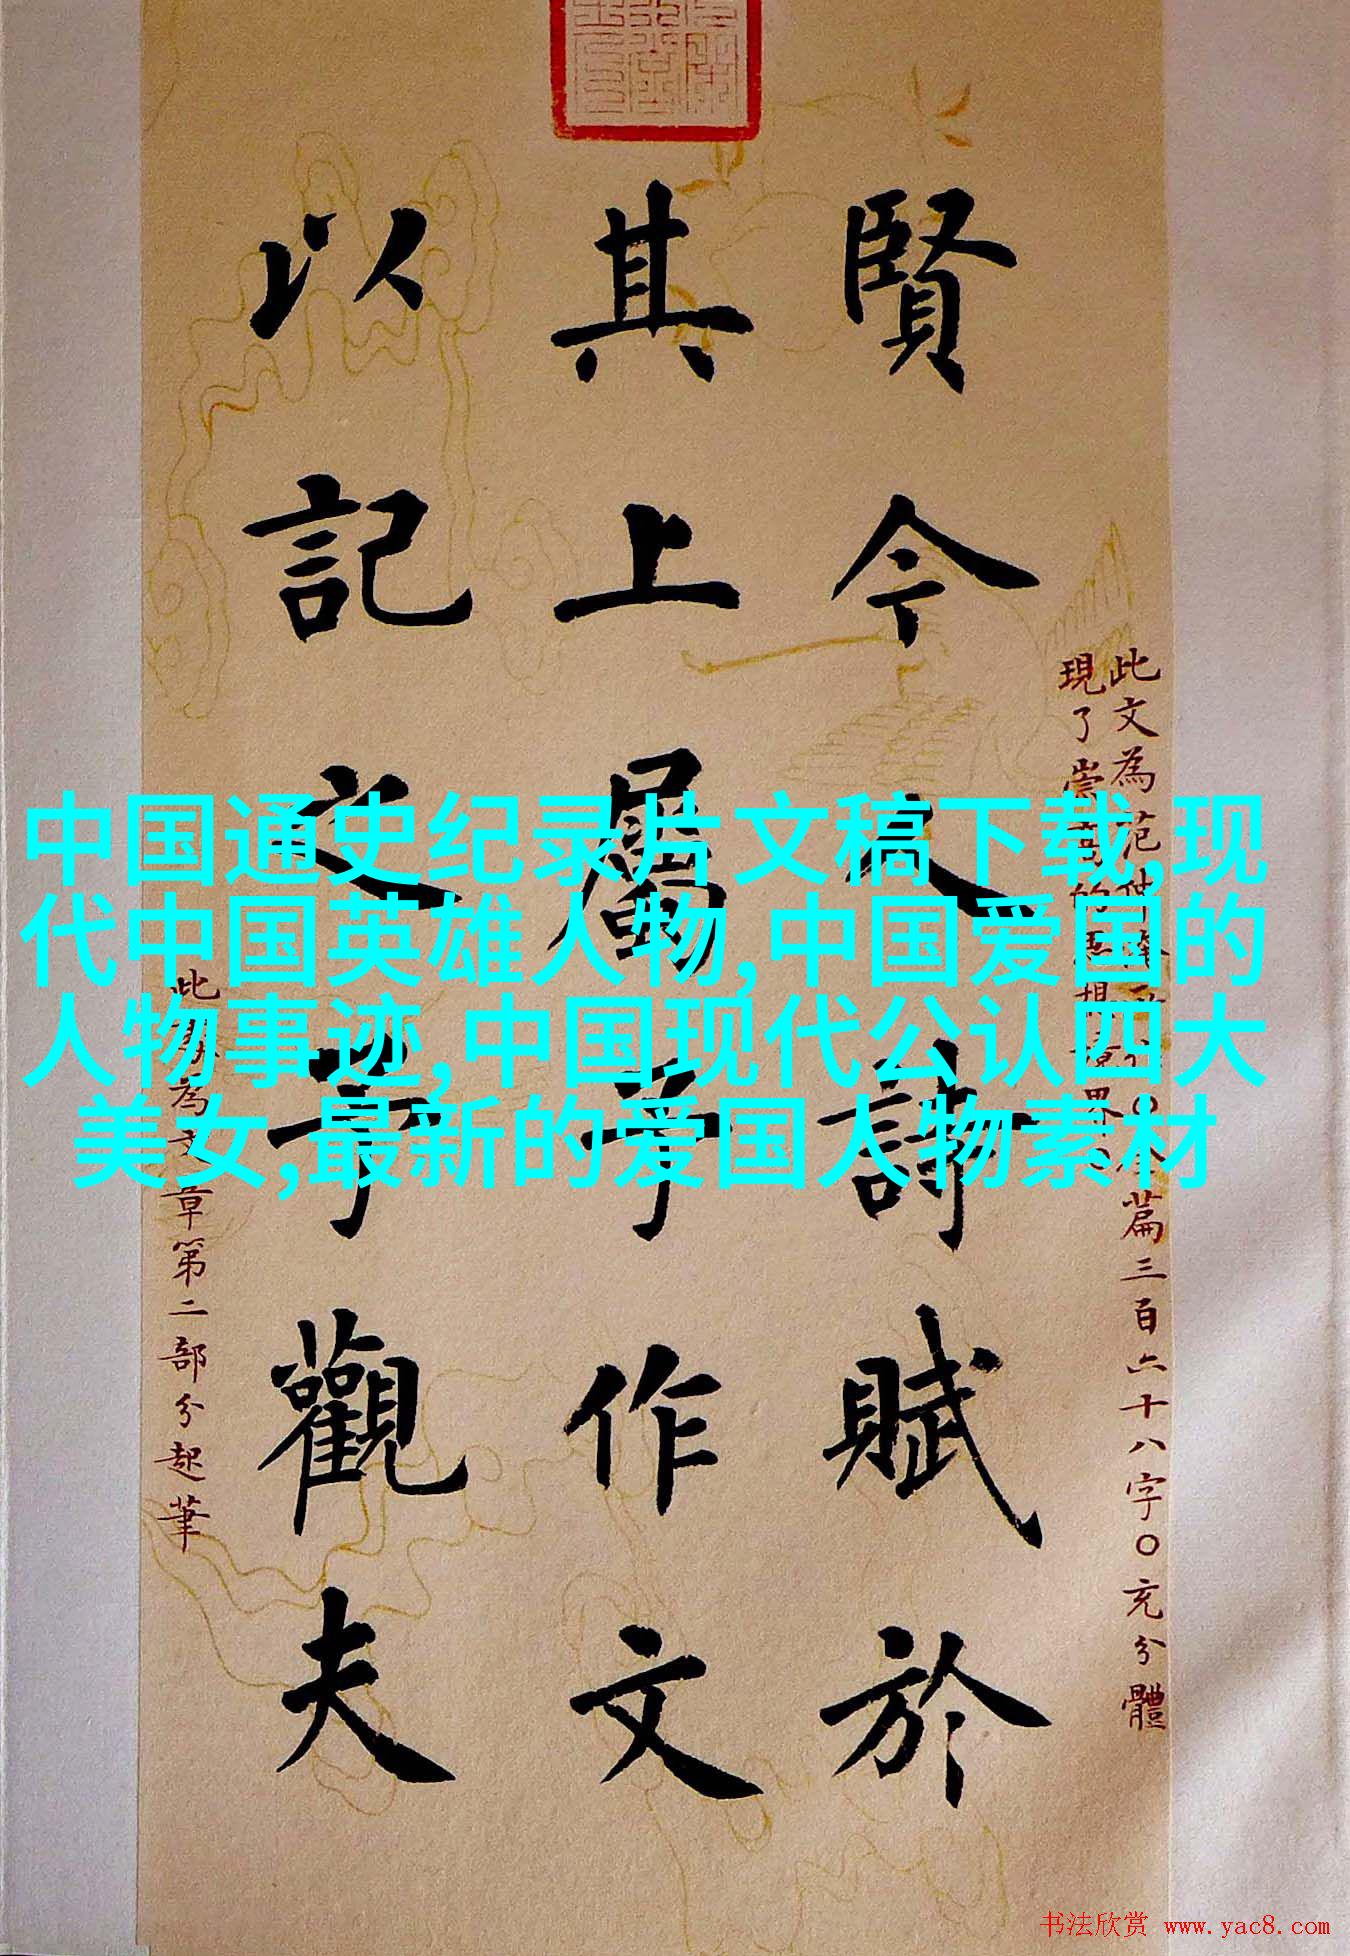 賢今人詩賦於
其上屬予作文
以記之予觀夫
此文為范仲淹
篇三百六十八字〇充分體
現了崇高的思想境界
此
為文章第二部分起筆
中国通史纪录片文稿下载,现
代中国英雄人物,中国爱国的
人物事迹,中国现代公认四大
美女,最新的爱国人物素材
书法欣赏 www.yac8.com